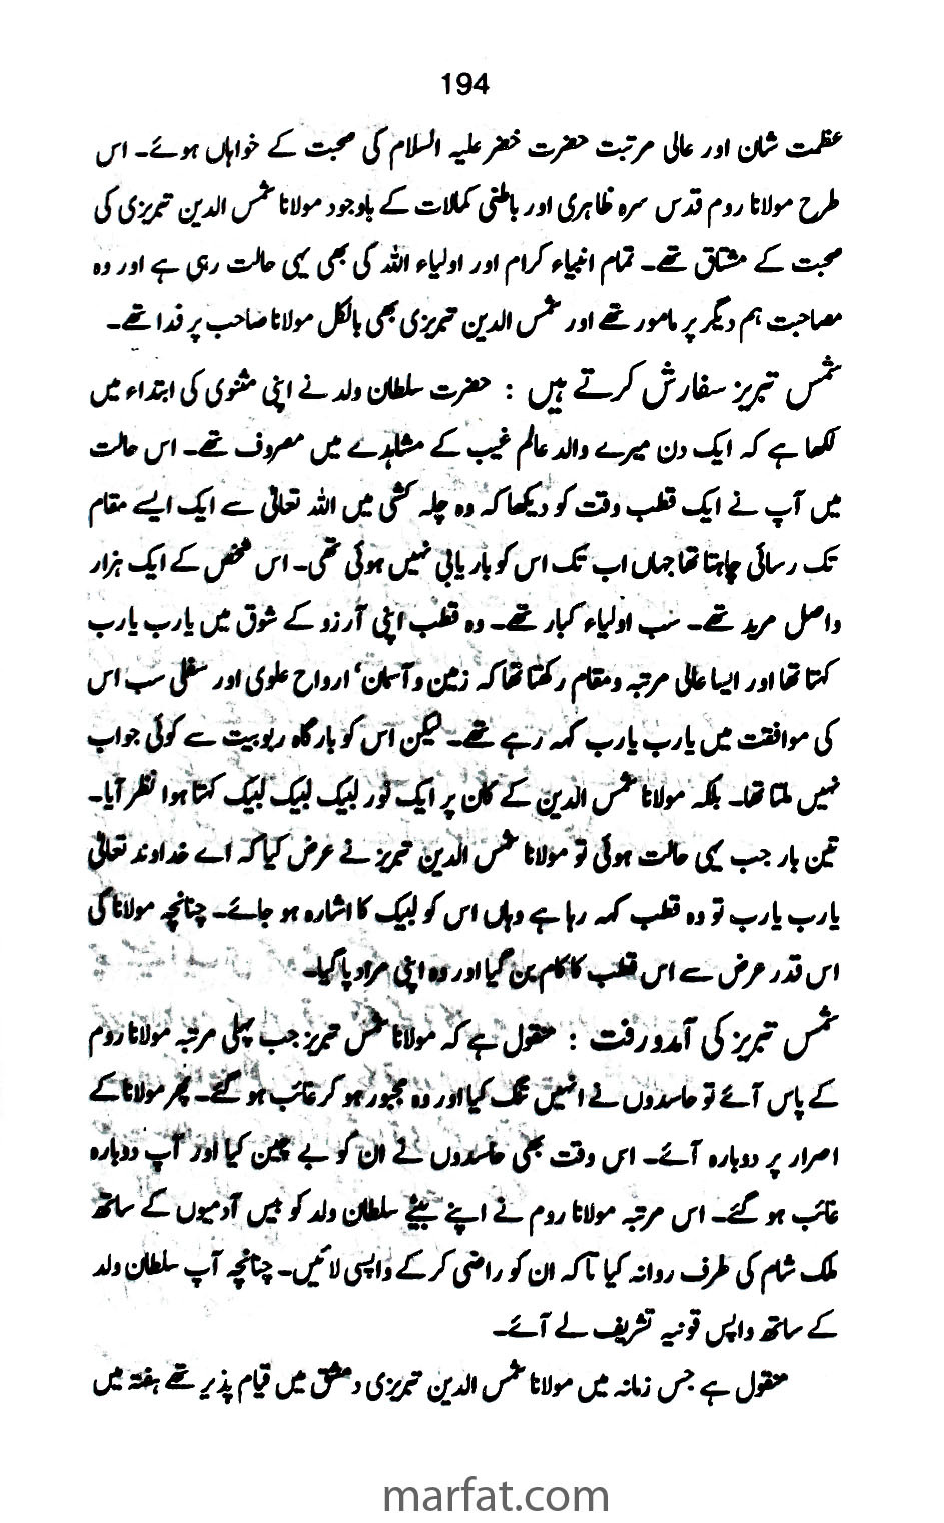 194
عظمت شان اور عالی مرتبت حضرت خضر علیہ السلام کی صحبت کے خواہاں ہوئے۔ اس
طرح مولانا روم قدس سرہ ظاہری اور باطنی کمالات کے باوجود مولانا شمس الدین تبریزی کی
صحبت کے مشتاق تھے۔ تمام انبیاء کرام اور اولیاء اللہ کی بھی یہی حالت رہی ہے اور وہ
مصاحبت ہم دیگر پر مامور تھے اور شمس الدین تبریزی بھی بالکل مولانا صاحب پر فدا تھے۔
شمس تبریز سفارش کرتے ہیں : حضرت سلطان ولد نے اپنی مثنوی کی ابتداء میں
لکھا ہے کہ ایک دن میرے والد عالم غیب کے مشاہدے میں مصروف تھے۔ اس حالت
میں آپ نے ایک قطب وقت کو دیکھا کہ وہ چلہ کشی میں اللہ تعالیٰ سے ایک ایسے مقام
تک رسائی چاہتا تھا جہاں اب تک اس کو باریابی نہیں ہوئی تھی۔ اس شخص کے ایک ہزار
واصل مرید تھے۔ سب اولیاء کبار تھے۔ وہ قطب اپنی آرزو کے شوق میں یارب یارب
کہتا تھا اور ایسا عالی مرتبہ و مقام رکھتا تھا کہ زمین و آسمان‘ ارواح علوی اور سفلی سب اس
کی موافقت میں یارب یارب کہہ رہے تھے۔ لیکن اس کو بارگاہ ربوبیت سے کوئی جواب
نہیں ملتا تھا۔ بلکہ مولانا شمس الدین کے کان پر ایک نور لبیک لبیک لبیک کہتا ہوا نظر آیا۔
تین بار جب یہی حالت ہوئی تو مولانا شمس الدین تبریز نے عرض کیا کہ اے خداوند تعالیٰ
یارب یارب تو وہ قطب کہہ رہا ہے وہاں اس کو لبیک کا اشارہ ہو جائے۔ چنانچہ مولانا کی
اس قدر عرض سے اس قطب کا کام بن گیا اور وہ اپنی مراد پا گیا۔
شمس تبریز کی آمدورفت : منقول ہے کہ مولانا شمس تبریز جب پہلی مرتبہ مولانا روم
کے پاس آئے تو حاسدوں نے انہیں تنگ کیا اور وہ مجبور ہو کر غائب ہو گئے۔ پھر مولانا کے
اصرار پر دوبارہ آئے۔ اس وقت بھی حاسدوں نے ان کو بے چین کیا اور آپ دوبارہ
غائب ہو گئے۔ اس مرتبہ مولانا روم نے اپنے بیٹے سلطان ولد کو بیس آدمیوں کے ساتھ
ملک شام کی طرف روانہ کیا تاکہ ان کو راضی کر کے واپس لائیں۔ چنانچہ آپ سلطان ولد
کے ساتھ واپس قونیہ تشریف لے آئے۔
منقول ہے جس زمانہ میں مولانا شمس الدین تبریزی دمشق میں قیام پذیر تھے ہفتہ میں
marfat.com